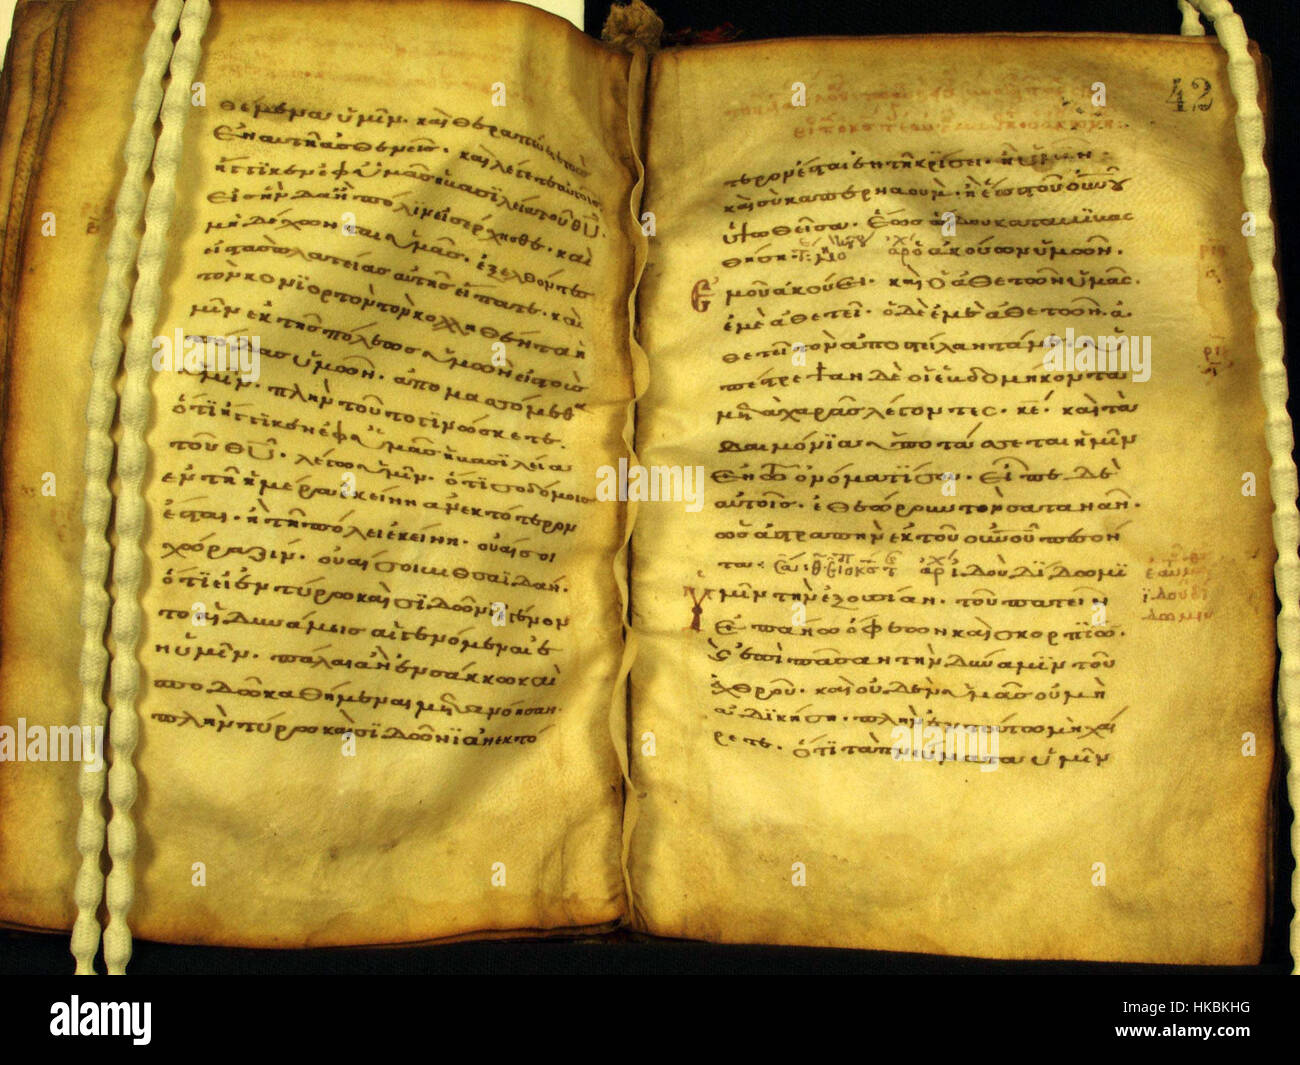 θέμενα ὑμῖν. καὶ θεραπεύετε τοὺς
ἐν αὐτῇ ἀσθενεῖς. καὶ λέγετε αὐτοῖς
ἤγγικεν ἐφ' ὑμᾶς ἡ βασιλεία τοῦ θῦ.
εἰς ἣν δ' ἂν πόλιν εἰσέρχησθε. καὶ
μὴ δέχωνται ὑμᾶς. ἐξελθόντες
εἰς τὰς πλατείας αὐτῆς εἴπατε. καὶ
τὸν κονϊορτὸν τὸν κολληθέντα ἡ
μῖν ἐκ τῆς πόλεως ὑμῶν εἰς τοὺς
πόδας ἡμῶν. ἀπομασσόμεθα
ὑμῖν. πλὴν τοῦτο γινώσκετε.
ὅτι ἤγγικεν ἐφ' ὑμᾶς ἡ βασιλεία
τοῦ θῦ. λέγω ὑμῖν. ὅτι σοδόμοις
ἐν τῇ ἡμέρα ἐκείνη ἀνεκτότερον
ἔσται. ἢ τῇ πόλει ἐκείνη. οὐαί σοι
χωραζίν. οὐαί σοι βηθσαϊδάν.
ὅτι εἰ ἐν τύρω καὶ σϊδῶνι ἐγένον
το αἱ δυνάμεις αἱ γενόμεναι ἐ
ν ὑμῖν. πάλαι ἂν ἐν σάκκω καὶ
σποδῶ καθήμεναι μετενόησαν.
πλὴν τύρω καὶ σϊδῶνϊ ἀνεκτό
42
τερον ἔσται ἐν τῇ κρίσει. ἢ ὑμῖν.
καὶ σὺ καπερναούμ. ἡ ἕως τοῦ οὐνοῦ
ὑψωθεῖσα. ἕως ἅδου καταβιβας
θήση
ἀρχ ὁ ἀκούων ὑμῶν.
ἐμοῦ ἀκούει. καὶ ὁ ἀθετῶν ὑμᾶς.
ἐμὲ ἀθετεῖ. ὁ δὲ ἐμὲ ἀθετῶν. ἀ
θετεῖ τὸν ἀποστείλαντά με. ὑ
πέστρεψαν δὲ οἱ ἑβδομήκοντα
μετὰ χαρᾶς λέγοντες. κε. καὶ τὰ
δαιμόνια ὑποτάσσεται ἡμῖν
ἐν τῶ ὀνόματί σου. εἶπε δὲ
αὐτοῖς. ἐθεώρουν τὸν σατανᾶν.
ὡς ἀστραπὴν ἐκ τοῦ οὐνοῦ πεσόν
τα
ἀρχ ἰδοὺ δίδωμι
ὑμῖν τὴν ἐξουσίαν. τοῦ πατεῖν
ἐπάνω ὄφεων καὶ σκορπίων.
καὶ ἐπὶ πᾶσαν τὴν δύναμιν τοῦ
ἐχθροῦ. καὶ οὐδὲν ὑμᾶς οὐ μὴ
ἀδϊκήση. πλὴν ἐν τούτω μὴ χαί
ρετε. ὅτϊ τὰ πνεύματα ὑμῖν
ἰδοὺ δί
δωμι ὑ
alamy
Image ID: HKBKHG
www.alamy.com